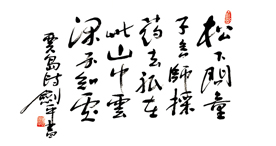 松下問童
子言師採
药去祇在
此山中雲
深不知處
賈島詩劍平書